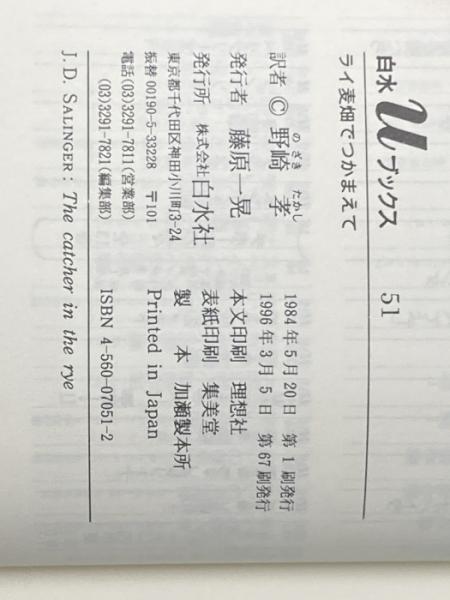 白水uブックス 51
ライ麦畑でつかまえて
1984年5月20日 第1刷発行
1996年3月5日 第67刷発行
訳者 © 野崎 孝
のざき たかし
発行者 藤原一晃
発行所 株式会社白水社
東京都千代田区神田小川町3-24
振替 00190-5-33228 〒101
電話(03)3291-7811(営業部)
(03)3291-7821(編集部)
本文印刷 理想社
表紙印刷 集美堂
製本 加瀬製本所
Printed in Japan
ISBN 4-560-07051-2
J. D. SALINGER: The catcher in the rye